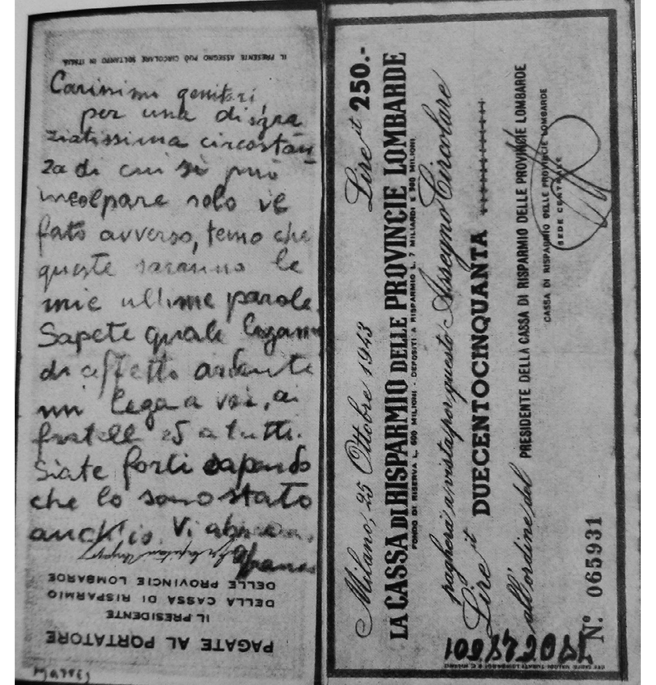 IL PRESENTE ASSEGNO PUÒ CIRCOLARE SOLTANTO IN ITALIA
Carissimi genitori
per una disgra
ziatissima circostan
za di cui si può
incolpare solo il
fato avverso, temo che
queste saranno le
mie ultime parole.
Sapete quale legame
di affetto ardente
mi lega a voi, ai
fratelli ed a tutti.
Siate forti sapendo
che lo sono stato
anch'io. Vi
PAGATE AL PORTATORE
IL PRESIDENTE
DELLA CASSA DI RISPARMIO
DELLE PROVINCIE LOMBARDE
Milano, 25 Ottobre 1943 Lire it 250.-
LA CASSA DI RISPARMIO DELLE PROVINCIE LOMBARDE
FONDO DI RISERVA L. 600 MILIONI - DEPOSITI A RISPARMIO L. 7 MILIARDI E 500 MILIONI
pagherà a vista per questo Assegno Circolare
Lire it DUECENTOCINQUANTA
all'ordine del PRESIDENTE DELLA CASSA DI RISPARMIO DELLE PROVINCIE LOMBARDE
CASSA DI RISPARMIO DELLE PROVINCIE LOMBARDE
SEDE CENTRALE
N° 065931